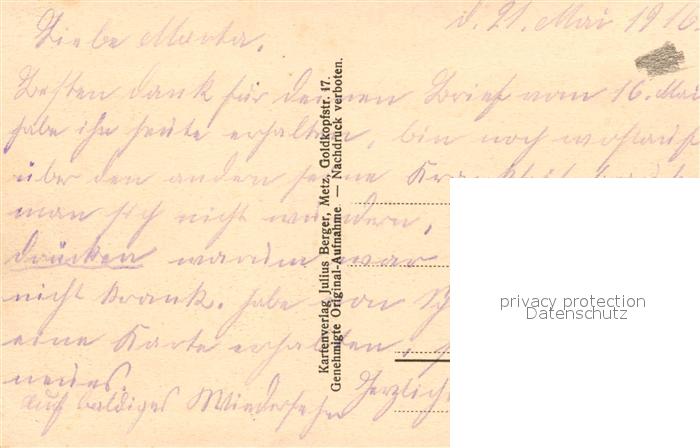 d. 21. Mai 1916.
Liebe Marta.
Besten dank für deinen Brief vom 16. Mai
habe ihn heute erhalten, bin noch wohlauf
über den andern seine
man sich nicht wundern,
drücken warum war
nicht krank. habe von
eine Karte erhalten,
neues.
Herzlich
auf baldiges Wiedersehn
Kartenverlag Julius Berger, Metz, Goldkopfstr. 17.
Genehmigte Original-Aufnahme — Nachdruck verboten.
privacy protection
Datenschutz